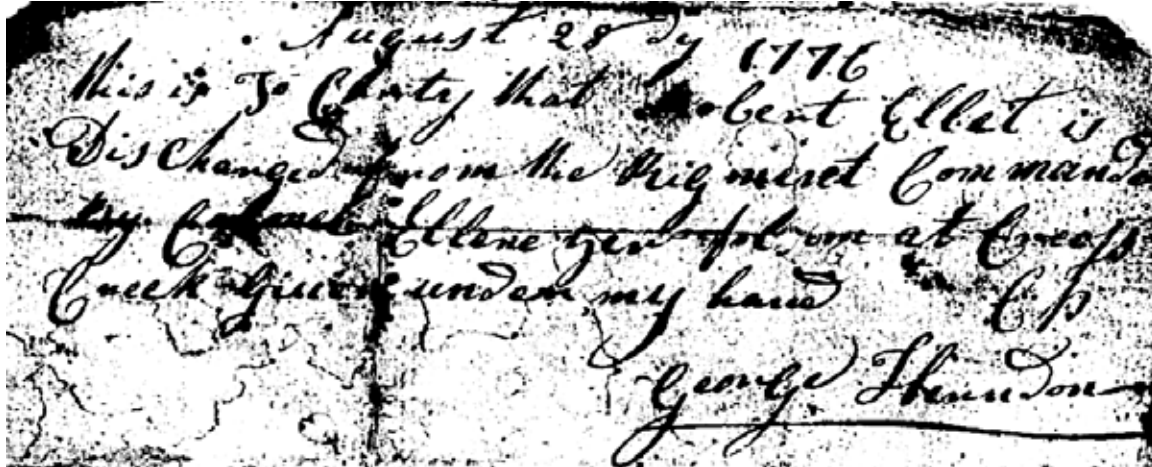 August 28 Dy 1776
this is To Certy that Robert Ellet is
Discharged from the Rigminet Command
by Colonel Ebene zer fol som at Cross
Creek Given under my hand Cp
George Herndon